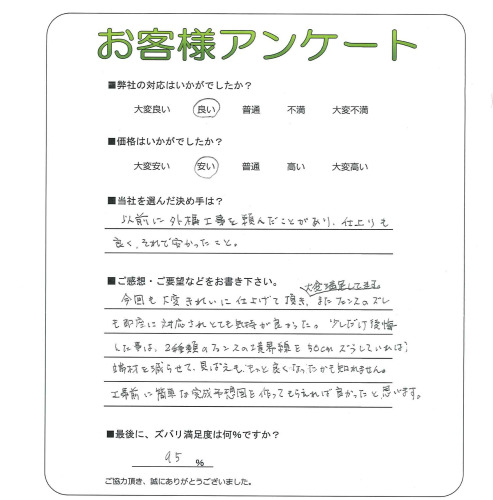 お客様アンケート
■弊社の対応はいかがでしたか？
大変良い 良い 普通 不満 大変不満
■価格はいかがでしたか？
大変安い 安い 普通 高い 大変高い
■当社を選んだ決め手は？
以前に外構工事を頼んだことがあり、仕上りも
良く、それで安かったこと。
■ご感想・ご要望などをお書き下さい。
大変満足してます。
今回も大変きれいに仕上げて頂き、またフェンスのズレ
も即座に対応されとても気持が良かった。少しだけ後悔
した事は、2種類のフェンスの境界線を50cmずらしていれば
端材を減らせて、見ばえももっと良くなったかも知れません。
工事前に簡単な完成予想図を作ってもらえれば良かったと思います。
■最後に、ズバリ満足度は何%ですか？
95 %
ご協力頂き、誠にありがとうございました。